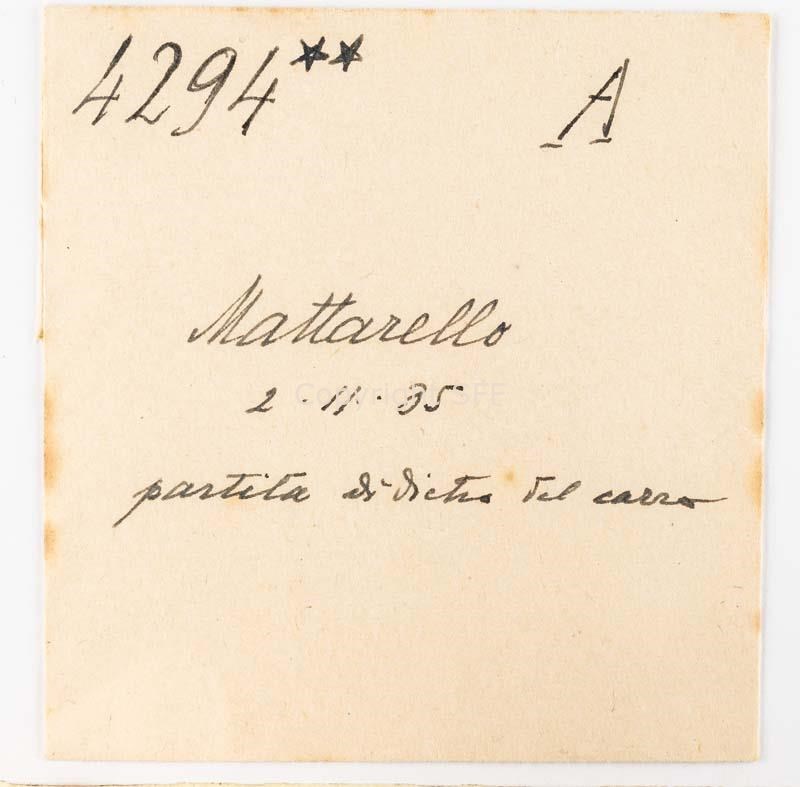 4294** A
Mattarello
2 · 11 · 35
partita di dietro del carro
Copyright SFF